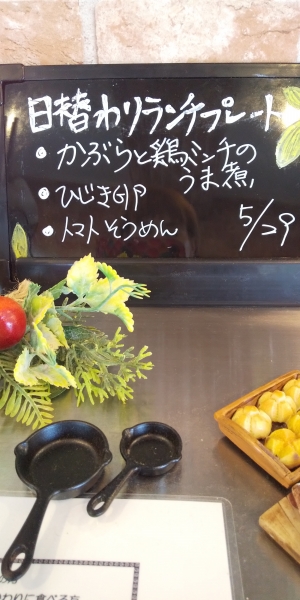 日替わりランチプレート
・かぶらと鶏ミンチの
うま煮
・ひじき
・トマトそうめん
5/29
わりに食べる方